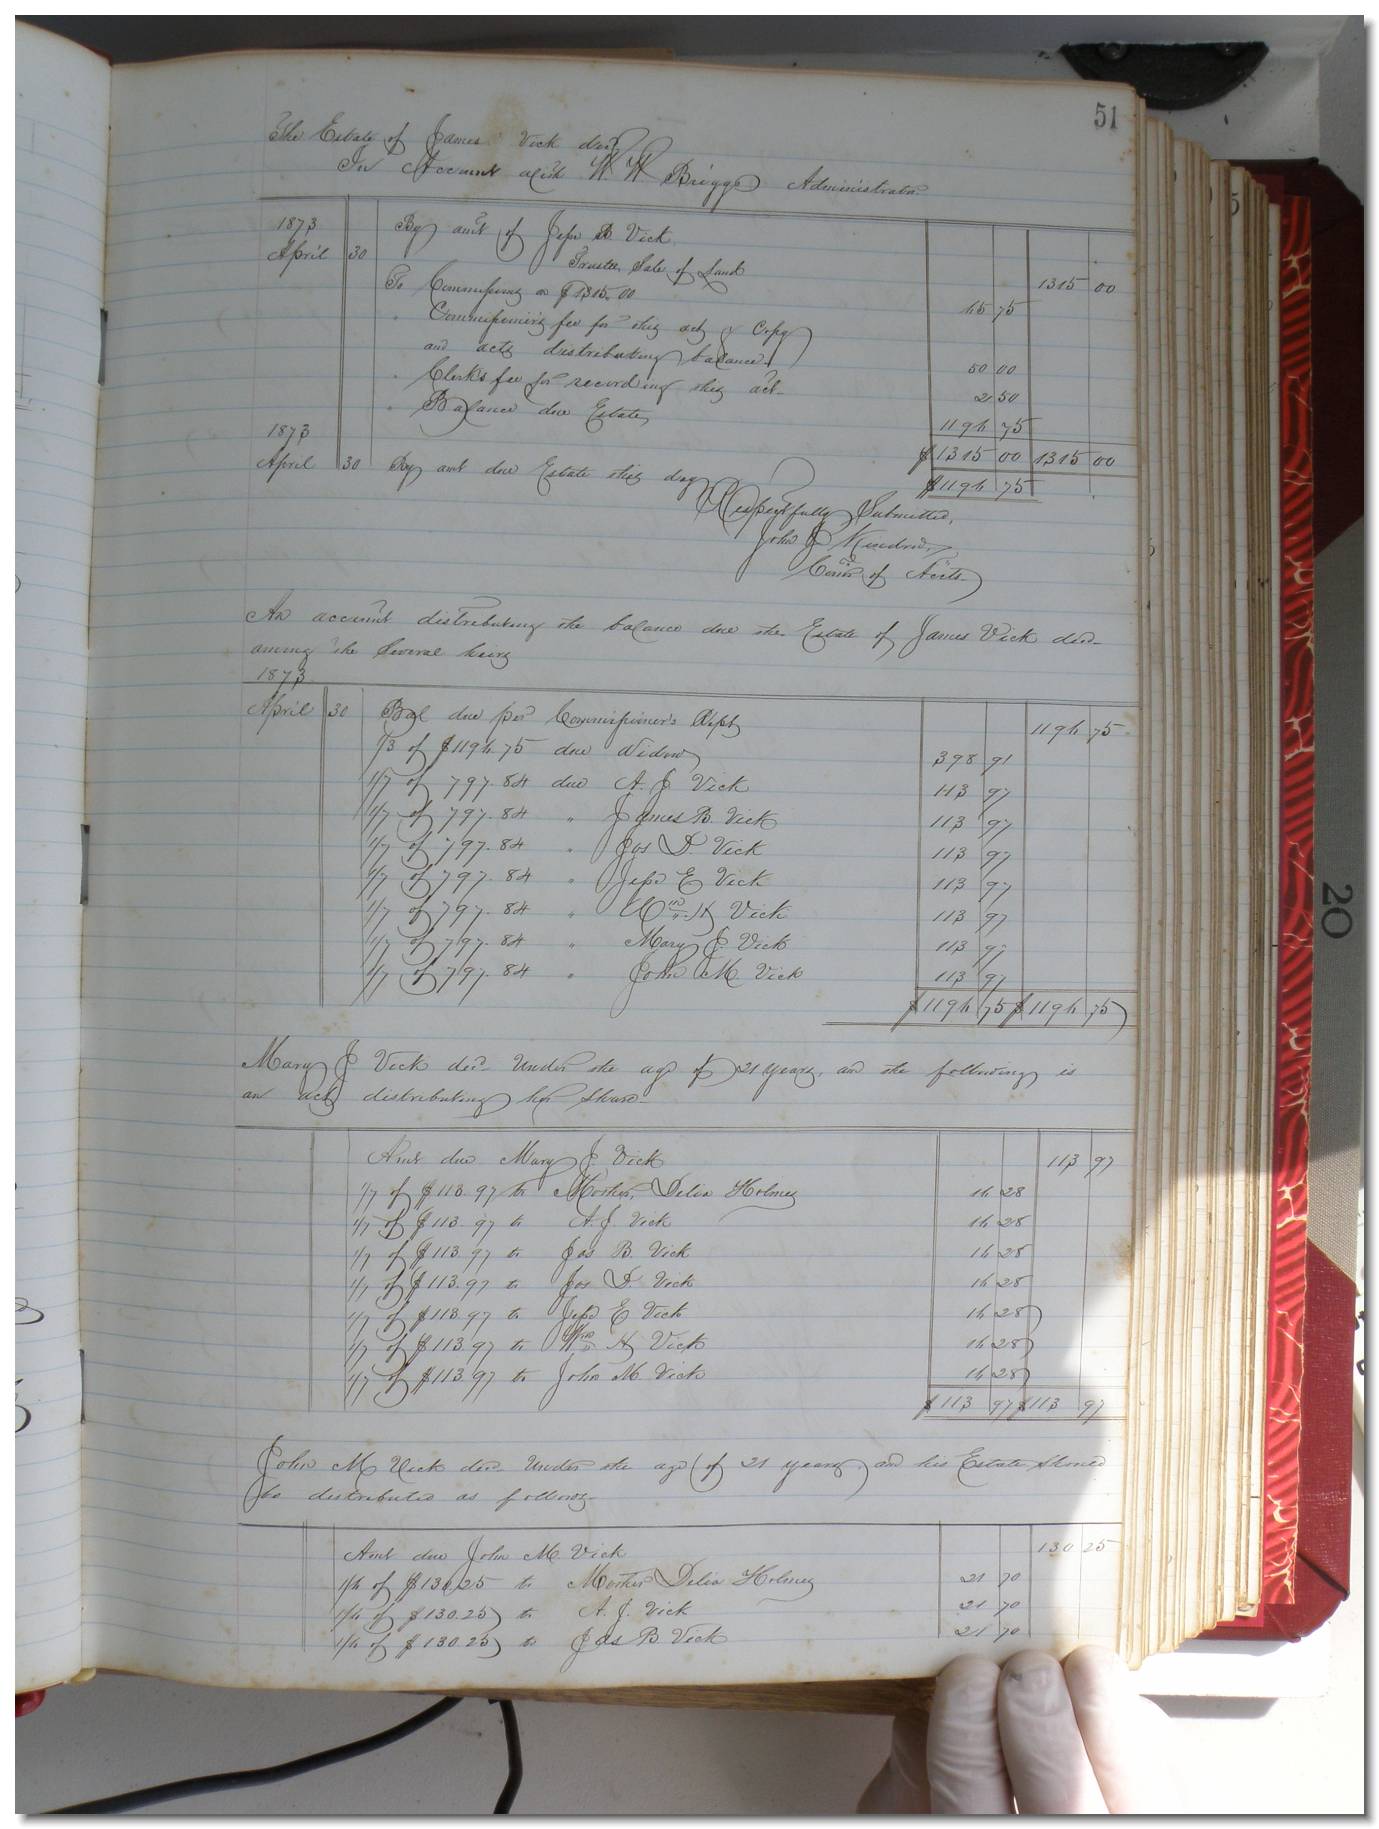 51
The Estate of James Vick decd
In Account with W. W. Briggs Administrator
1873 By amt of Jesse B. Vick
April 30 Trustee, Sale of Land 1315 00
To Commissions on $1315.00 65 75
" Commissioner's fee for this act & Copy
and acts distributing balance 50 00
" Clerk's fee for recording this act 2 50
" Balance due Estate 1196 75
1873 $1315 00 1315 00
April 30 By amt due Estate this day $1196 75
Respectfully Submitted,
John J. Kindred,
Comr of Accts
An account distributing the balance due the Estate of James Vick decd
among the several heirs
1873
April 30 Bal due per Commissioner's Rept 1196 75
1/3 of $1196.75 due Widow 398 91
1/7 of 797.84 due A. J. Vick 113 97
1/7 of 797.84 " James B. Vick 113 97
1/7 of 797.84 " Jos D. Vick 113 97
1/7 of 797.84 " Jesse E Vick 113 97
1/7 of 797.84 " Wm H Vick 113 97
1/7 of 797.84 " Mary J. Vick 113 97
1/7 of 797.84 " John M. Vick 113 97
$1196 75 $1196 75
Mary J Vick decd under the age of 21 years, and the following is
an act distributing her share
Amt due Mary J. Vick 113 97
1/7 of $113.97 to Mother, Delia Holmes 16 28
1/7 of $113.97 to A. J. Vick 16 28
1/7 of $113.97 to Jas B. Vick 16 28
1/7 of $113.97 to Jos D. Vick 16 28
1/7 of $113.97 to Jesse E Vick 16 28
1/7 of $113.97 to Wm H Vick 16 28
1/7 of $113.97 to John M Vick 16 28
$113 97 $113 97
John M Vick decd under the age of 21 years, and his Estate should
be distributed as follows
Amt due John M. Vick 130 25
1/6 of $130.25 to Mother Delia Holmes 21 70
1/6 of $130.25 to A. J. Vick 21 70
1/6 of $130.25 to Jas B Vick 21 70
20